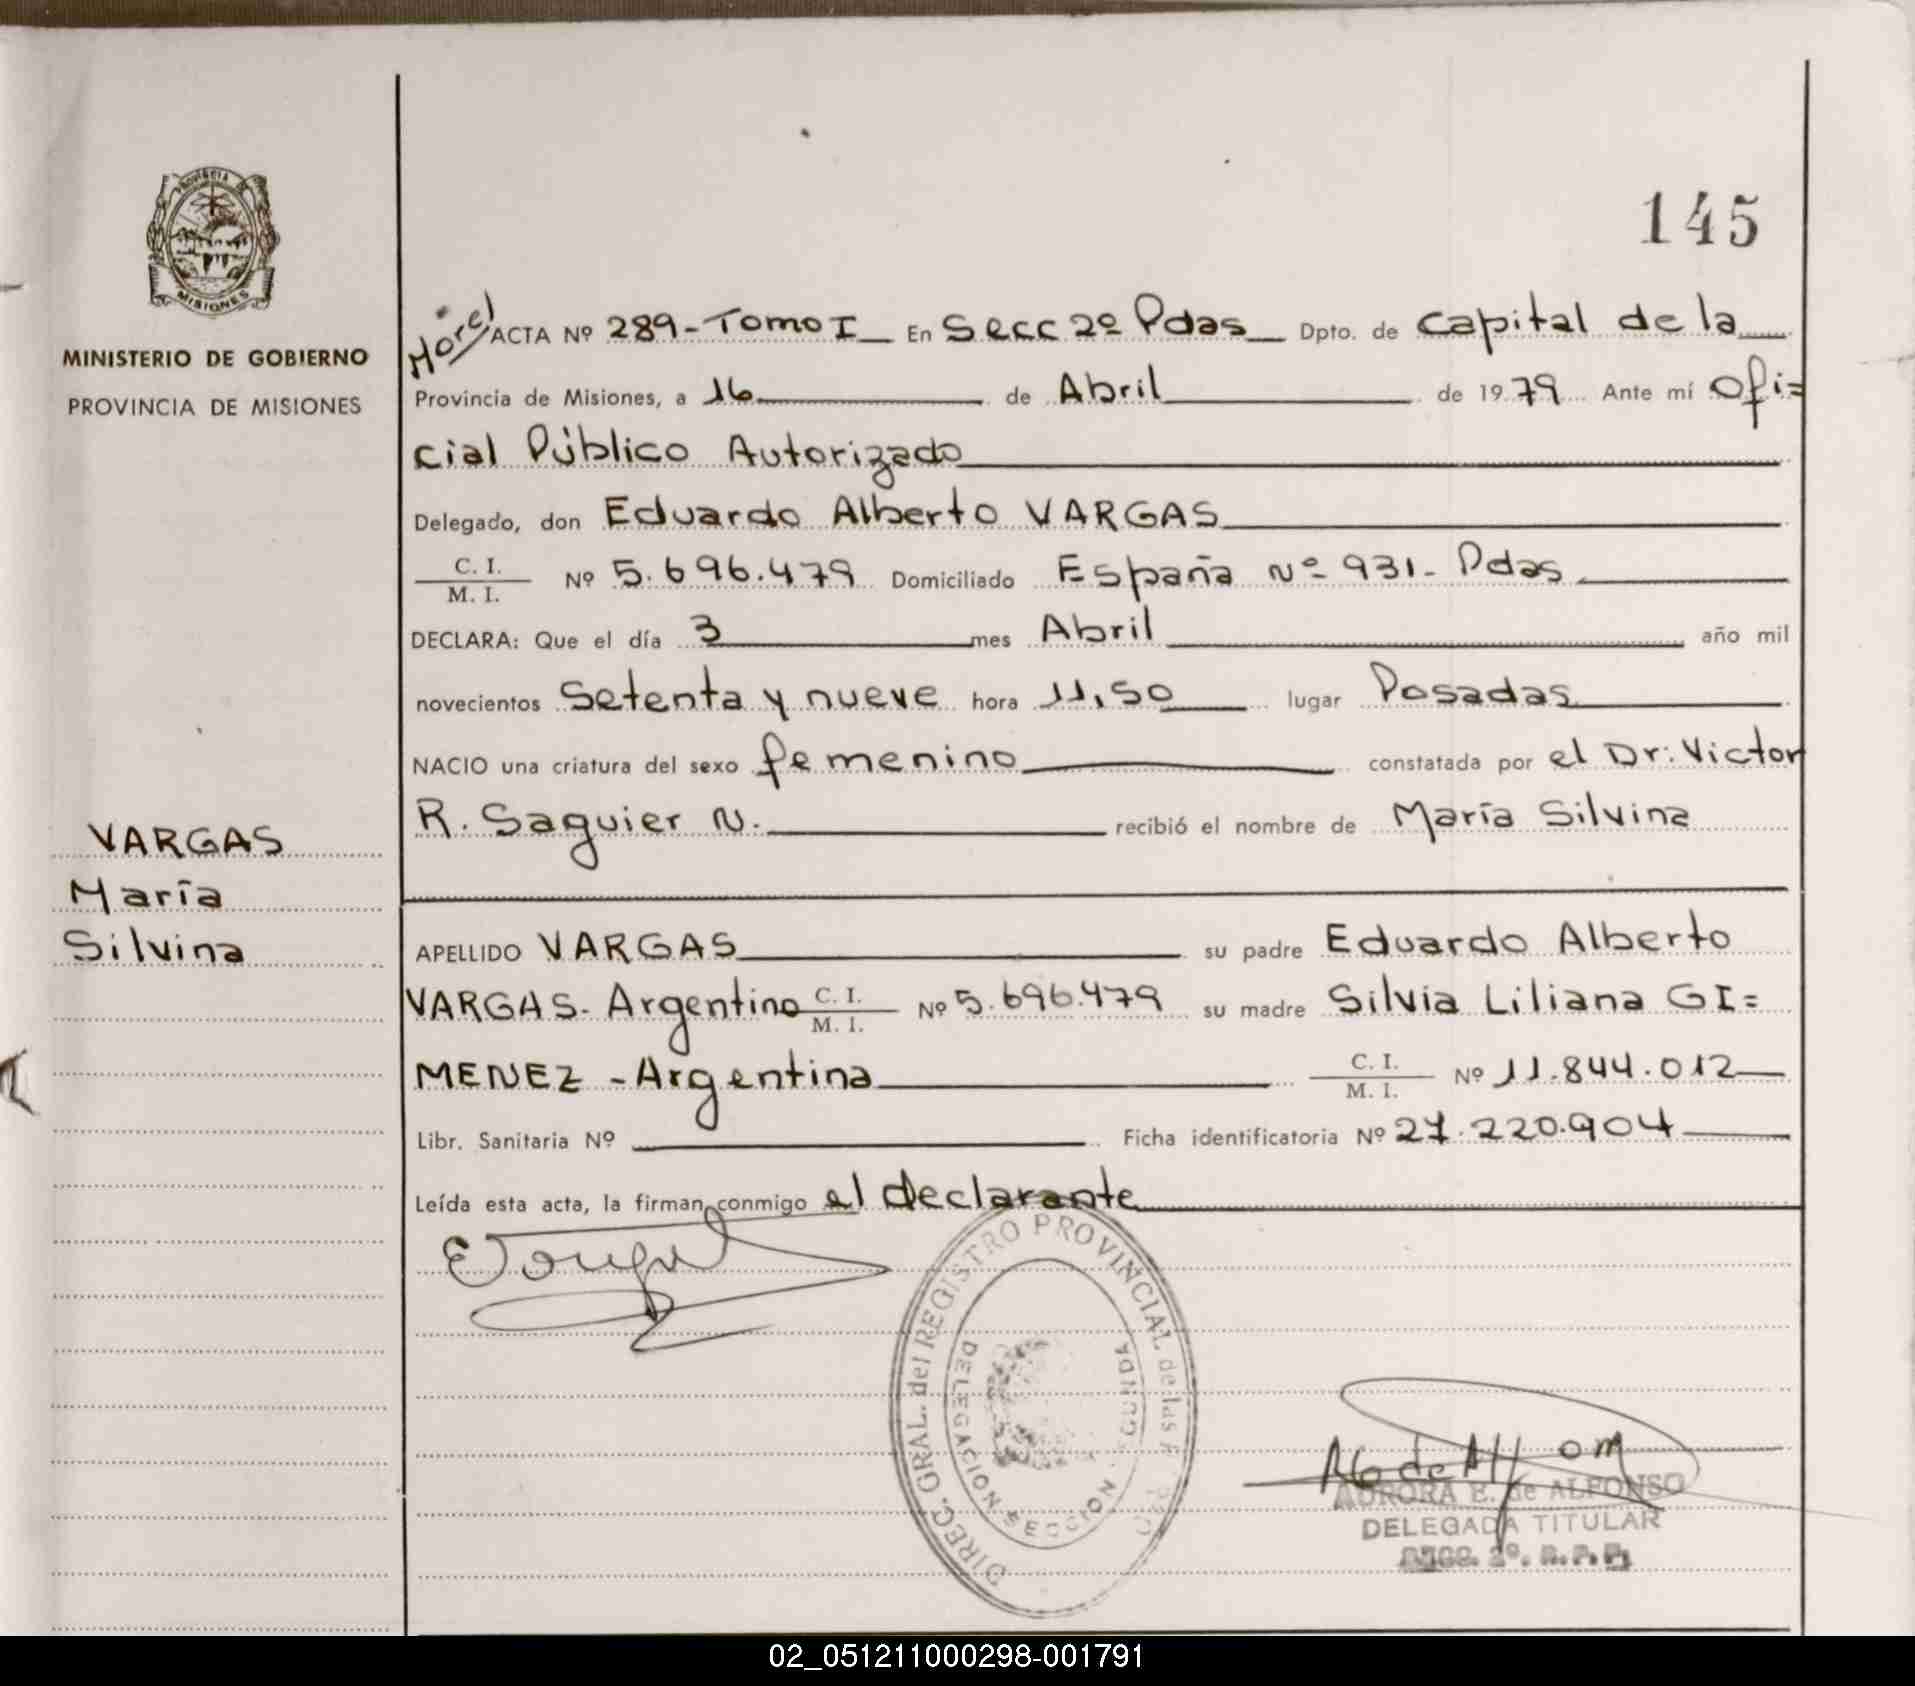 145
PROVINCIA DE
MISIONES
MINISTERIO DE GOBIERNO
PROVINCIA DE MISIONES
ACTA Nº 289-Tomo I En Secc 2º Pdas Dpto. de Capital de la
Provincia de Misiones, a 16 de Abril de 1979 Ante mí Ofi=
cial Público Autorizado
Delegado, don Eduardo Alberto VARGAS
C. I.
M. I. Nº 5.696.479 Domiciliado España Nº 931- Pdas
DECLARA: Que el día 3 mes Abril año mil
novecientos Setenta y nueve hora 11,50 lugar Posadas
NACIO una criatura del sexo femenino constatada por el Dr: Victor
R. Saguier N. recibió el nombre de María Silvina
VARGAS
María
Silvina
APELLIDO VARGAS su padre Eduardo Alberto
VARGAS- Argentino C. I. M. I. Nº 5.696.479 su madre Silvia Liliana GI=
MENEZ - Argentina C. I. M. I. Nº 11.844.012
Libr. Sanitaria Nº Ficha identificatoria Nº 27.220.904
Leída esta acta, la firman conmigo el declarante
DIREC. GRAL. del REGISTRO PROVINCIAL de las
DELEGACION SECCION
AURORA E. de ALFONSO
DELEGADA TITULAR
SECC. 2º. R.P.P.
02_051211000298-001791